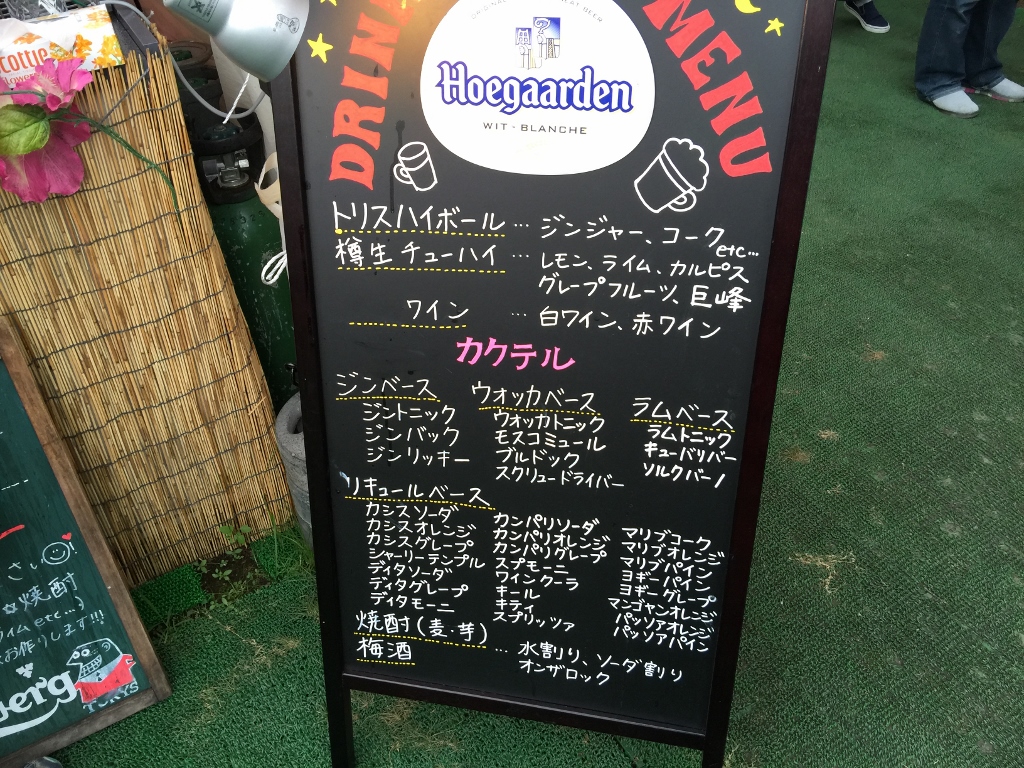 DRINK MENU
Hoegaarden
WIT · BLANCHE
トリスハイボール … ジンジャー、コーク etc…
樽生チューハイ … レモン、ライム、カルピス
グレープフルーツ、巨峰
ワイン … 白ワイン、赤ワイン
カクテル
ジンベース
ジントニック
ジンバック
ジンリッキー
ウォッカベース
ウォッカトニック
モスコミュール
ブルドック
スクリュードライバー
ラムベース
ラムトニック
キューバリバー
ソルクバーノ
リキュールベース
カシスソーダ
カシスオレンジ
カシスグレープ
シャーリーテンプル
ディタソーダ
ディタグレープ
ディタモーニ
カンパリソーダ
カンパリオレンジ
カンパリグレープ
スプモーニ
ワインクーラ
キール
キティ
スプリッツァ
マリブコーク
マリブオレンジ
マリブパイン
ヨギーパイン
ヨギーグレープ
マンゴヤンオレンジ
パッソアオレンジ
パッソアパイン
焼酎(麦・芋)
梅酒 … 水割り、ソーダ割り
オンザロック
cottie
flower
さい
☆焼酎
イムetc…)
お作りします!!!
berg